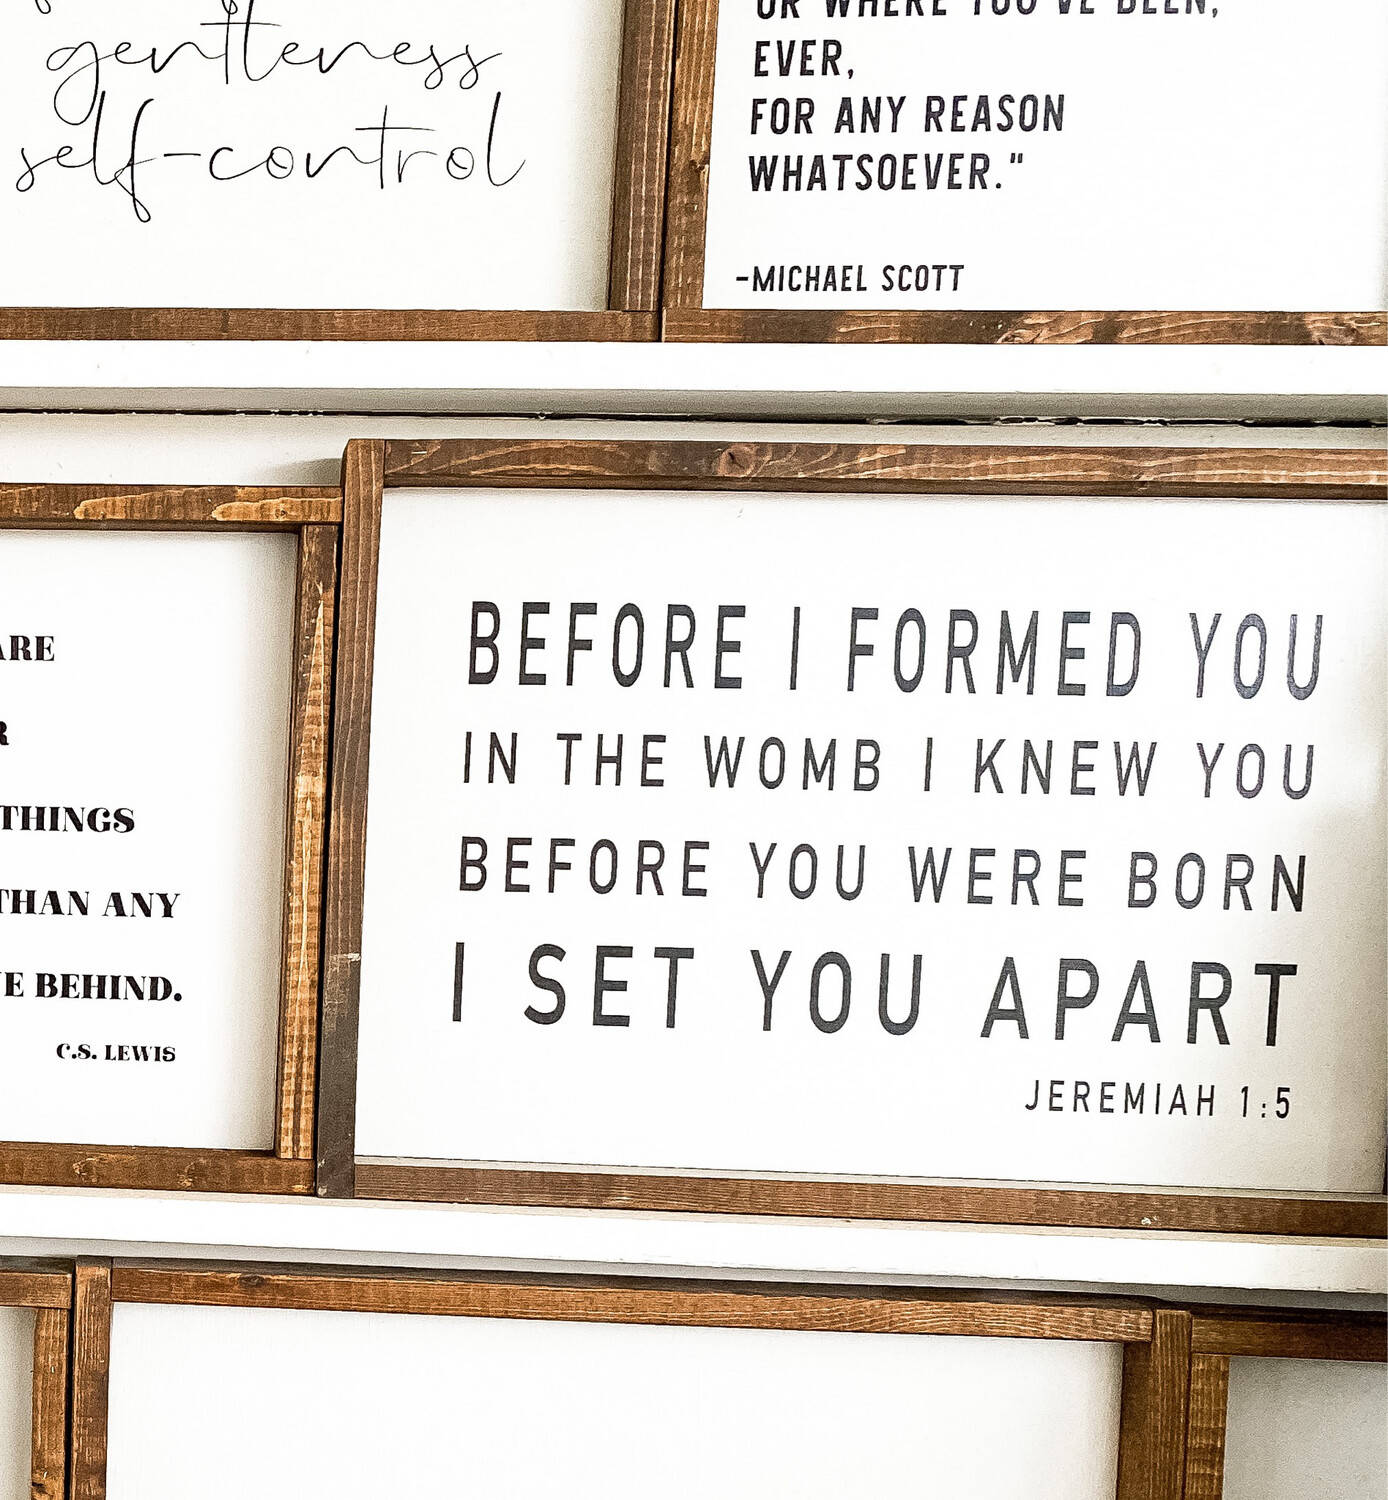 gentleness
self-control
OR WHERE YOU'VE BEEN,
EVER,
FOR ANY REASON
WHATSOEVER."
-MICHAEL SCOTT
THINGS
THAN ANY
BEHIND.
C.S. LEWIS
BEFORE I FORMED YOU
IN THE WOMB I KNEW YOU
BEFORE YOU WERE BORN
I SET YOU APART
JEREMIAH 1:5